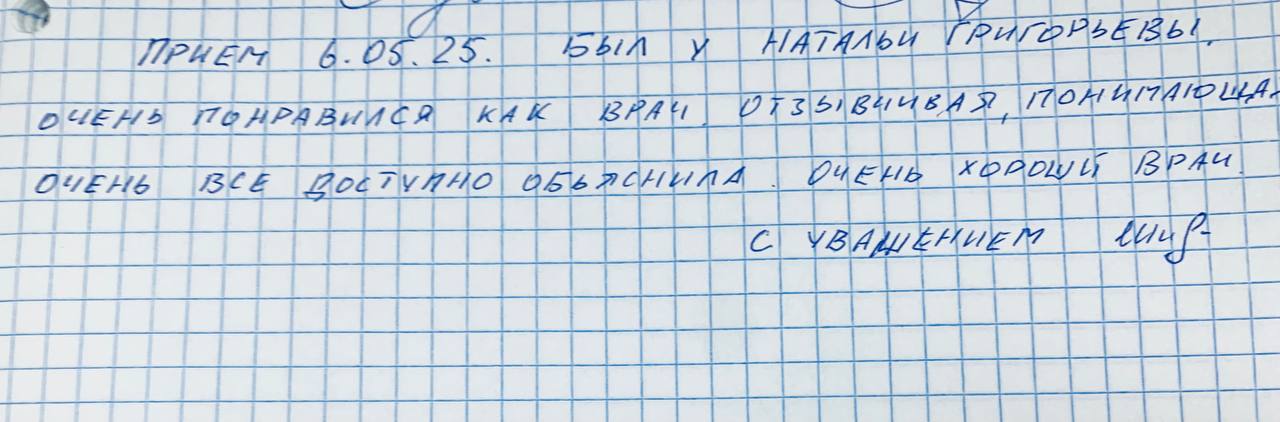 ПРИЕМ 6.05.25. БЫЛ У НАТАЛЬИ ГРИГОРЬЕВЫ.
ОЧЕНЬ ПОНРАВИЛСЯ КАК ВРАЧ. ОТЗЫВЧИВАЯ, ПОНИМАЮЩАЯ
ОЧЕНЬ ВСЕ ДОСТУПНО ОБЬЯСНИЛА. ОЧЕНЬ ХОРОШИЙ ВРАЧ.
С УВАЖЕНИЕМ